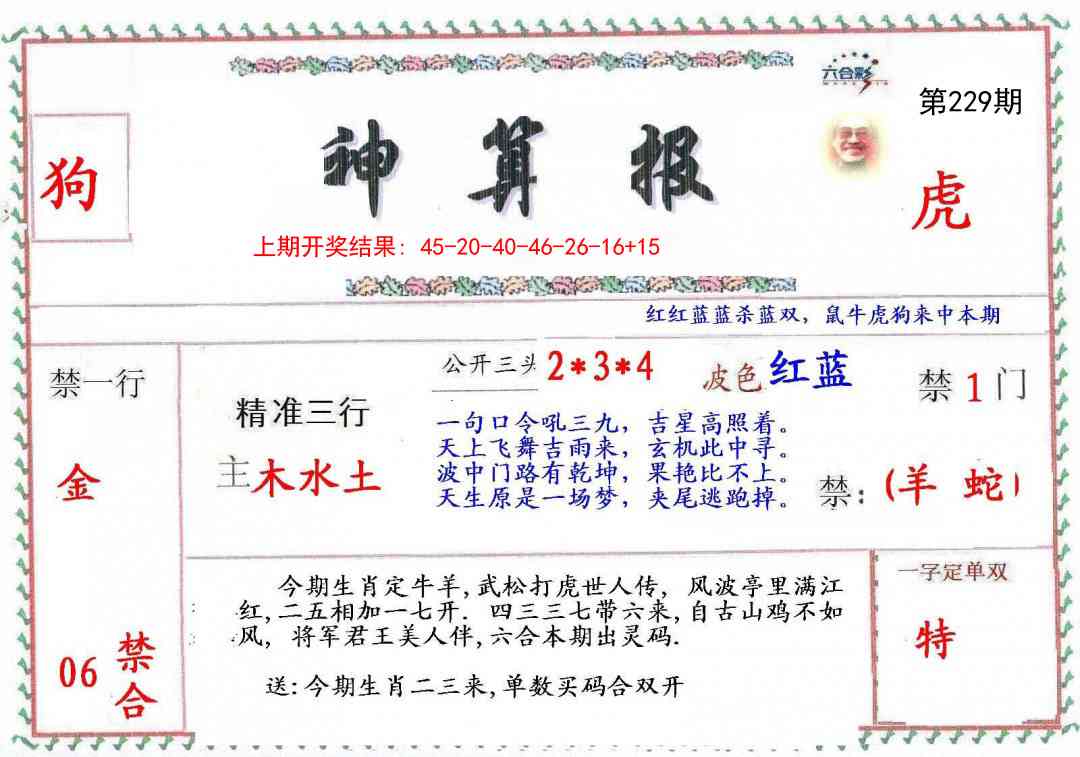 六合彩
第229期
狗
神算报
虎
上期开奖结果：45-20-40-46-26-16+15
红红蓝蓝杀蓝双，鼠牛虎狗来中本期
禁一行
金
06
禁合
精准三行
主木水土
公开三头 2*3*4
波色 红蓝
一句口令吼三九，吉星高照着。
天上飞舞吉雨来，玄机此中寻。
波中门路有乾坤，果艳比不上。
天生原是一场梦，夹尾逃跑掉。
禁 1 门
禁：(羊 蛇)
今期生肖定牛羊,武松打虎世人传, 风波亭里满江
红,二五相加一七开. 四三三七带六来,自古山鸡不如
凤, 将军君王美人伴,六合本期出灵码.
送:今期生肖二三来,单数买码合双开
一字定单双
特